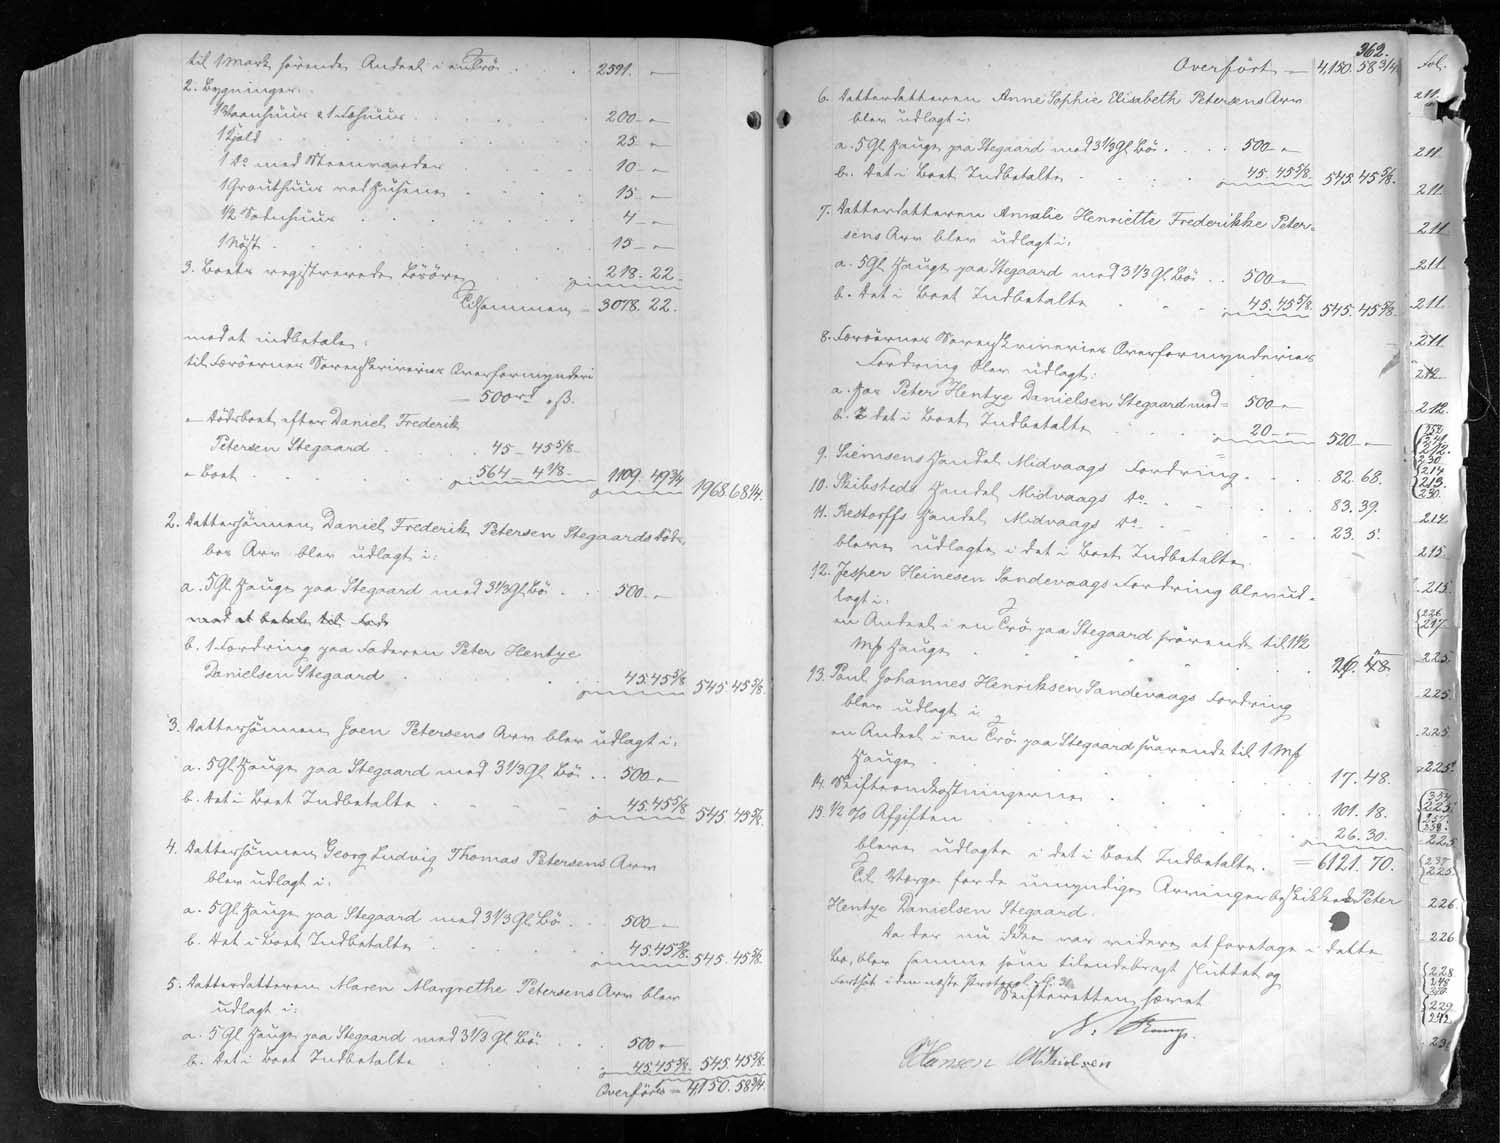 til 1 Mark hørende Andeel i en Trö . . . 2591. —
2. Bygninger:
1 Vaanhuus & 1 Fæhuus . . . . . 200 — "
1 Hjald . . . . . 25 "
1 do med Steenvarder . . . . 10 — "
1 Grouthuus ved Husene . . . . 15 — "
1/2 Sotnhuus . . . . . 4 — "
1 Nöst . . . . . 15 — "
3. Boets registrerede Lösöre . . . 218. 22.
Tilsammen — 3078. 22.
mod at indbetale:
til Færöernes Sorenskriveries Overformynderi
— 500 rd " ß.
" Dödsboet efter Daniel Frederik
Petersen Stegaard . . 45 — 45 5/8
" Boet . . . . . 564 — 4 1/8 — 1109. 49 3/4 1968. 68 1/4.
2. Dattersönnen Daniel Frederik Petersen Stegaards Döds-
boes Arv blev udlagt i:
a. 5 Gl. Hauge paa Stegaard med 3 1/3 Gl. Bö . . 500. — "
mod at betale til
b. 1 Fordring paa Faderen Peter Hentze
Danielsen Stegaard . . . . 45. 45 5/8 545. 45 5/8.
3. Dattersönnen Joen Petersens Arv blev udlagt i:
a. 5 Gl. Hauge paa Stegaard med 3 1/3 Gl. Bö . . 500 — "
b. Det i Boet Indbetalte . . . . 45. 45 5/8. 545. 45 5/8.
4. Dattersönnen Georg Ludvig Thomas Petersens Arv
blev udlagt i:
a. 5 Gl. Hauge paa Stegaard med 3 1/3 Gl. Bö . . 500 — "
b. Det i Boet Indbetalte . . . . 45. 45 5/8. 545. 45 5/8.
5. Datterdatteren Maren Margrethe Petersens Arv blev
udlagt i:
a. 5 Gl. Hauge paa Stegaard med 3 1/3 Gl. Bö . . . 500 "
b. Det i Boet Indbetalte . . . . 45. 45 5/8. 545. 45 5/8.
Overföres = 4,150. 58 3/4
362.
Overfört — 4,150. 58 3/4
6. Datterdatteren Anne Sophie Elisabeth Petersens Arv
blev udlagt i:
a. 5 Gl. Hauge paa Stegaard med 3 1/3 Gl. Bö . . . . 500 — "
b. Det i Boet Indbetalte . . . . 45. 45 5/8. 545. 45 5/8.
7. Datterdatteren Amalie Henriette Frederikke Peter-
sens Arv blev udlagt i:
a. 5 Gl. Hauge paa Stegaard med 3 1/3 Gl. Bö . . 500 — "
b. Det i Boet Indbetalte . . . 45. 45 5/8. 545. 45 5/8.
8. Færöernes Sorenskriveries Overformynderies
Fordring blev udlagt:
a. hos Peter Hentze Danielsen Stegaard med = 500 — "
b. i det i Boet Indbetalte . . . . 20 — " 520 — "
9. Siemsens Handel Midvaags Fordring . . . 82. 68.
10. Skibsteds Handel Midvaags do. . . . 83. 39.
11. Restorffs Handel Midvaags do . . . 23. 5.
bleve udlagte i det i Boet Indbetalte.
12. Jesper Heinesen Sandevaags Fordring blev ud-
lagt i:
en Andeel i en Trö paa Stegaard svarende til 1 1/2
Mk Hauge . . . . . . 26. 48.
13. Poul Johannes Henriksen Sandevaags Fordring
blev udlagt i
en Andeel i en Trö paa Stegaard svarende til 1 Mk
Hauge . . . . . . 17. 48.
14. Skifteomkostningerne . . . . . 101. 18.
15. 1/2 % Afgiften . . . . . . 26. 30.
bleve udlagte i det i Boet Indbetalte. = 6121. 70.
Til Værge for de umyndige Arvinger beskikkedes Peter
Hentze Danielsen Stegaard.
Da der nu ikke var videre at foretage i dette
Bo, blev samme som tilendebragt sluttet og
Fortsat i den næste Protocol
Skifteretten hævet
Hansen
Fol.
211.
211
211.
211
211.
211.
211
212
212.
212.
230
214
213.
230.
214
215.
215.
226
217.
225.
225.
225.
225.
225.
225
237
225.
226.
226
228
229
242